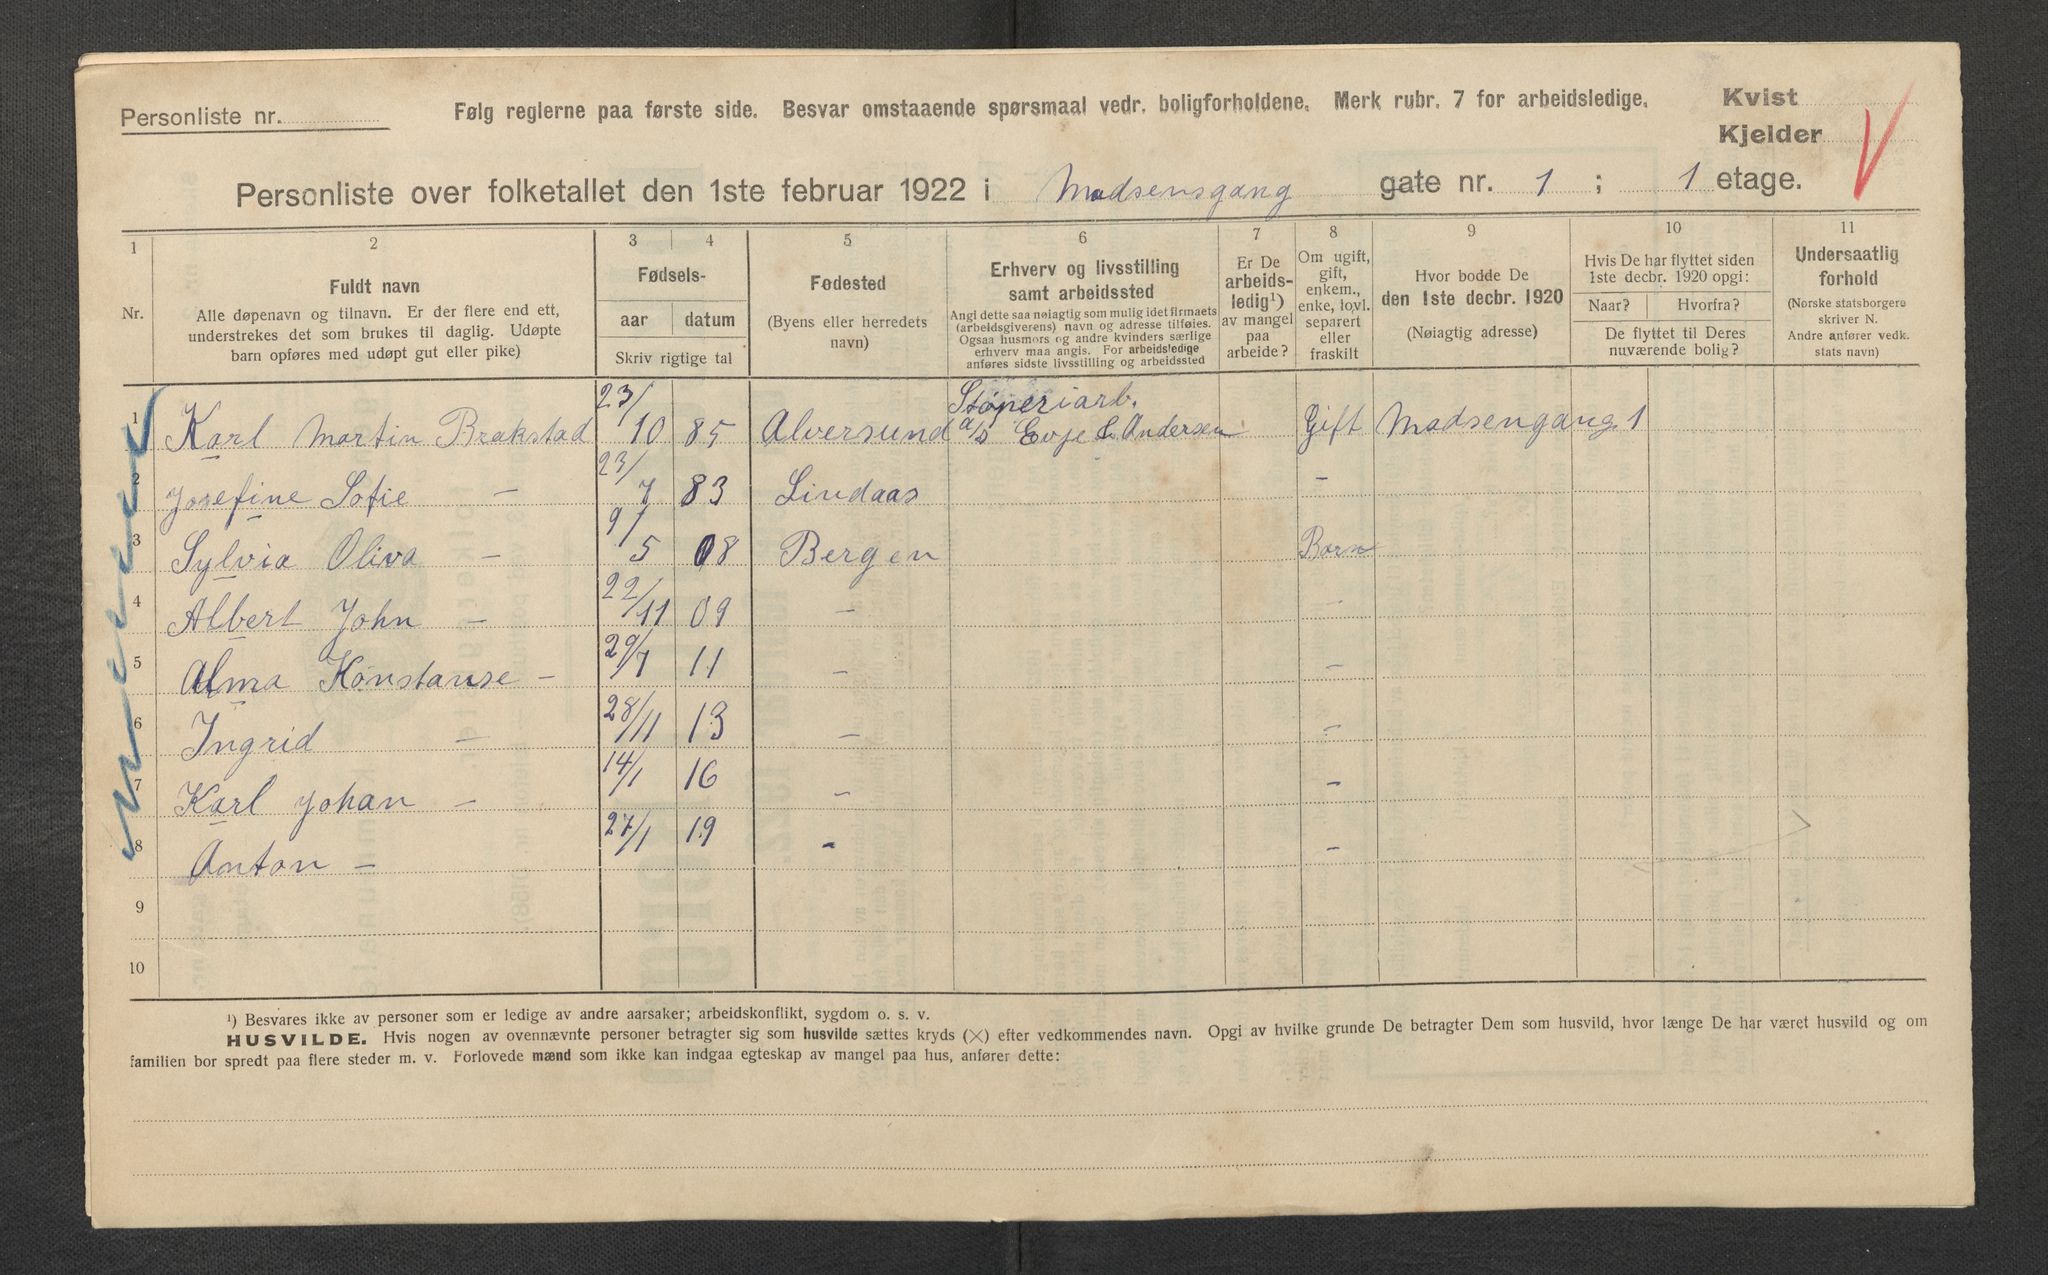 Personliste nr.
Følg reglerne paa første side. Besvar omstaaende spørsmaal vedr. boligforholdene. Merk rubr. 7 for arbeidsledige.
Kvist
Kjelder
Personliste over folketallet den 1ste februar 1922 i Madsensgang gate nr. 1 ; 1 etage.
1 2 3 4 5 6 7 8 9 10 11
Nr.
Fuldt navn
Alle døpenavn og tilnavn. Er der flere end ett,
understrekes det som brukes til daglig. Udøpte
barn opføres med udøpt gut eller pike)
Fødsels-
aar datum
Skriv rigtige tal
Fødested
(Byens eller herredets
navn)
Erhverv og livsstilling
samt arbeidssted
Angi dette saa nøiagtig som mulig idet firmaets
(arbeidsgiverens) navn og adresse tilføies.
Ogsaa husmors og andre kvinders særlige
erhverv maa angis. For arbeidsledige
anføres sidste livsstilling og arbeidssted
Er De
arbeids-
ledig¹)
av mangel
paa
arbeide?
Om ugift,
gift,
enkem.,
enke, lovl.
separert
eller
fraskilt
Hvor bodde De
den 1ste decbr. 1920
(Nøiagtig adresse)
Hvis De har flyttet siden
1ste decbr. 1920 opgi:
Naar? Hvorfra?
De flyttet til Deres
nuværende bolig?
Undersaatlig
forhold
(Norske statsborgere
skriver N.
Andre anfører vedk.
stats navn)
1 Karl Martin Brakstad 23/10 85 Alversund Støperiarb. a/s Evje & Andersen Gift Madsengang 1
2 Josefine Sofie — 23/7 83 Lindaas —
3 Sylvia Oliva — 9/5 08 Bergen Barn
4 Albert John — 22/11 09 — —
5 Alma Konstanse — 29/7 11 — —
6 Ingrid — 28/11 13 — —
7 Karl Johan — 14/1 16 — —
8 Anton — 27/1 19 — —
9
10
¹) Besvares ikke av personer som er ledige av andre aarsaker; arbeidskonflikt, sygdom o. s. v.
HUSVILDE. Hvis nogen av ovennævnte personer betragter sig som husvilde sættes kryds (×) efter vedkommendes navn. Opgi av hvilke grunde De betragter Dem som husvild, hvor længe De har været husvild og om
familien bor spredt paa flere steder m. v. Forlovede mænd som ikke kan indgaa egteskap av mangel paa hus, anfører dette: